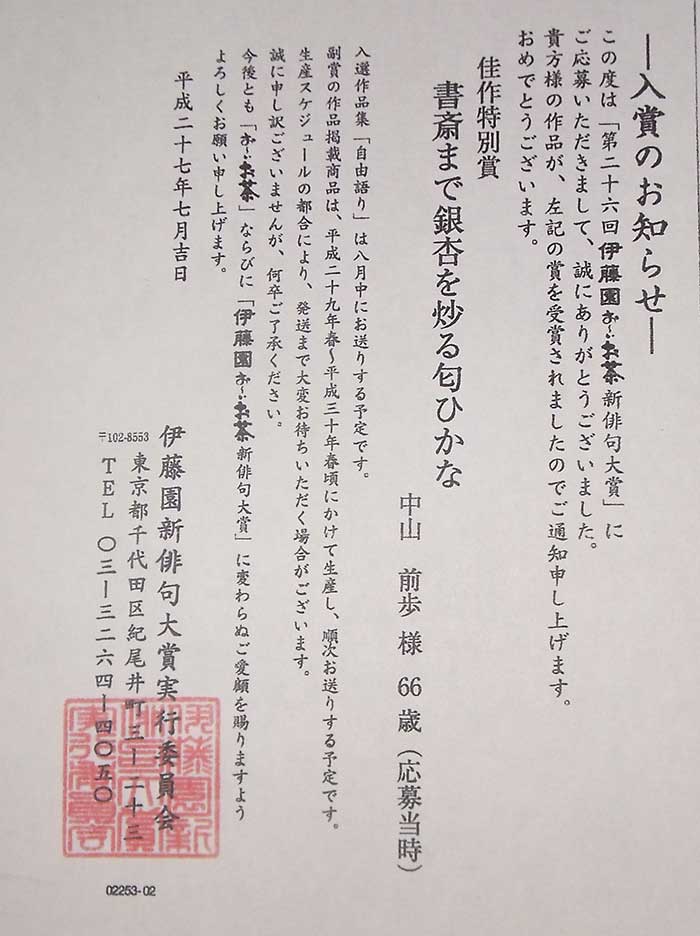 ―入賞のお知らせ―
この度は「第二十六回伊藤園お~いお茶新俳句大賞」に
ご応募いただきまして、誠にありがとうございました。
貴方様の作品が、左記の賞を受賞されましたのでご通知申し上げます。
おめでとうございます。
佳作特別賞
書斎まで銀杏を炒る匂ひかな
中山 前歩 様 66歳（応募当時）
入選作品集「自由語り」は八月中にお送りする予定です。
副賞の作品掲載商品は、平成二十九年春～平成三十年春頃にかけて生産し、順次お送りする予定です。
生産スケジュールの都合により、発送まで大変お待ちいただく場合がございます。
誠に申し訳ございませんが、何卒ご了承ください。
今後とも「お~いお茶」ならびに「伊藤園お~いお茶新俳句大賞」に変わらぬご愛顧を賜りますよう
よろしくお願い申し上げます。
平成二十七年七月吉日
伊藤園新俳句大賞実行委員会
〒102-8553
東京都千代田区紀尾井町三―二十三
TEL 〇三―三二六四―四〇五〇
02253-02